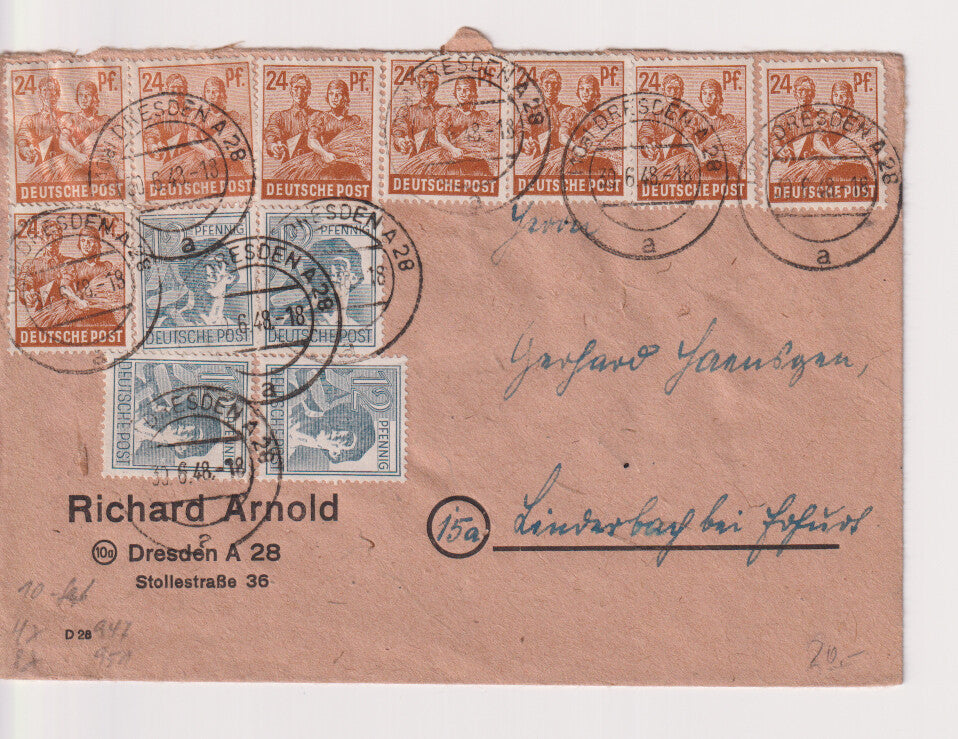 24 Pf. 24 Pf. 24 Pf. 24 Pf. 24 Pf. 24 Pf. 24 Pf.
DEUTSCHE POST DEUTSCHE POST DEUTSCHE POST DEUTSCHE POST DEUTSCHE POST DEUTSCHE POST DEUTSCHE POST
DRESDEN A 28
30.6.48.-18
a
DRESDEN A 28
48.-18
DRESDEN A 28
6.48.-18
a
DRESDEN A 28
a
24
DEUTSCHE POST
DRESDEN A 28
48.-18
a
PFENNIG
DEUTSCHE POST
PFENNIG
DEUTSCHE POST
DRESDEN A 28
6.48.-18
a
DRESDEN A 28
18
12 PFENNIG
DEUTSCHE POST
12 PFENNIG
DRESDEN A 28
30.6.48.-18
a
Herrn
Gerhard Haensgen,
15a Linderbach bei Erfurt
Richard Arnold
10a Dresden A 28
Stollestraße 36
D 28
10-fach
947
950
20,-